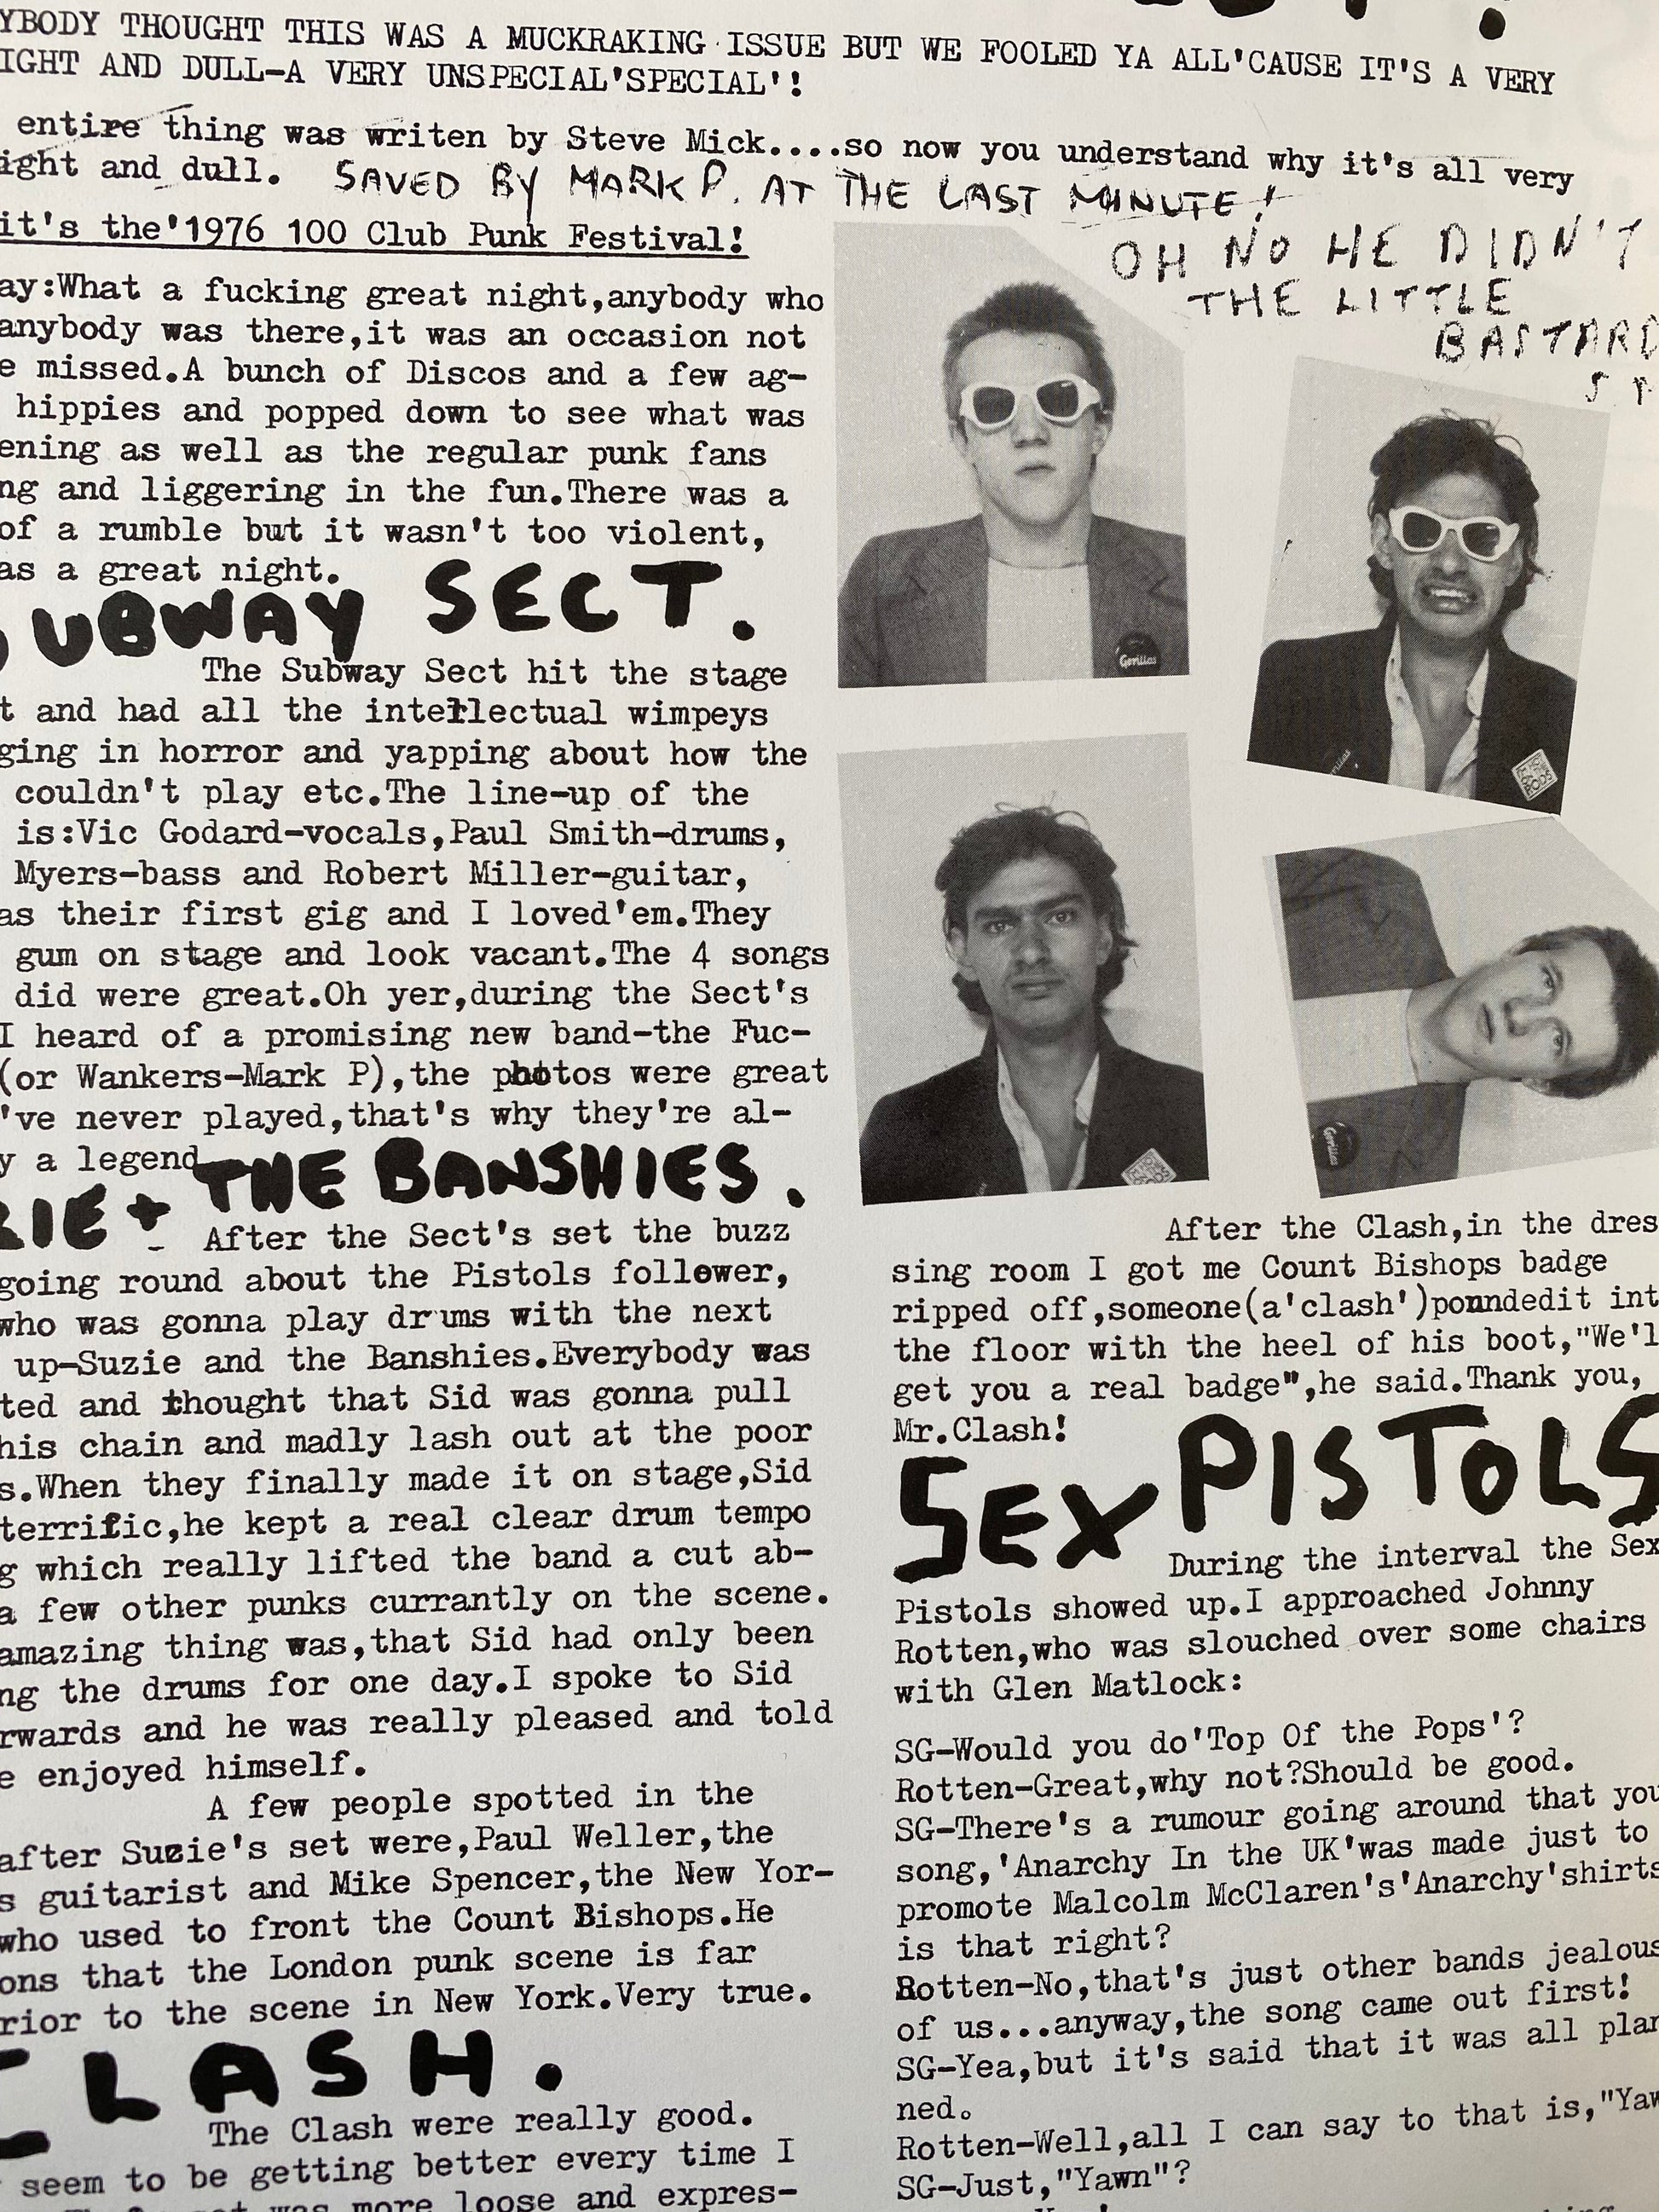 YBODY THOUGHT THIS WAS A MUCKRAKING ISSUE BUT WE FOOLED YA ALL'CAUSE IT'S A VERY
IGHT AND DULL-A VERY UNSPECIAL'SPECIAL'!
entire thing was writen by Steve Mick....so now you understand why it's all very
ight and dull. SAVED BY MARK P. AT THE LAST MINUTE!
OH NO HE DIDN'T
THE LITTLE
BASTARD
S.P
it's the'1976 100 Club Punk Festival!
ay:What a fucking great night,anybody who
anybody was there,it was an occasion not
e missed.A bunch of Discos and a few ag-
hippies and popped down to see what was
ening as well as the regular punk fans
ng and liggering in the fun.There was a
of a rumble but it wasn't too violent,
as a great night.
SUBWAY SECT.
The Subway Sect hit the stage
t and had all the intellectual wimpeys
ging in horror and yapping about how the
couldn't play etc.The line-up of the
is:Vic Godard-vocals,Paul Smith-drums,
Myers-bass and Robert Miller-guitar,
as their first gig and I loved'em.They
gum on stage and look vacant.The 4 songs
did were great.Oh yer,during the Sect's
I heard of a promising new band-the Fuc-
(or Wankers-Mark P),the photos were great
've never played,that's why they're al-
y a legend
ZIE + THE BANSHIES.
After the Sect's set the buzz
going round about the Pistols follower,
who was gonna play drums with the next
up-Suzie and the Banshies.Everybody was
ted and thought that Sid was gonna pull
his chain and madly lash out at the poor
s.When they finally made it on stage,Sid
terrific,he kept a real clear drum tempo
g which really lifted the band a cut ab-
a few other punks currantly on the scene.
amazing thing was,that Sid had only been
ng the drums for one day.I spoke to Sid
rwards and he was really pleased and told
e enjoyed himself.
A few people spotted in the
after Suzie's set were,Paul Weller,the
s guitarist and Mike Spencer,the New Yor-
who used to front the Count Bishops.He
ons that the London punk scene is far
rior to the scene in New York.Very true.
CLASH.
The Clash were really good.
seem to be getting better every time I
was more loose and expres-
Gorillas
RODS
Gorillas
After the Clash,in the dres
sing room I got me Count Bishops badge
ripped off,someone(a'clash')ponndedit int
the floor with the heel of his boot,"We'l
get you a real badge",he said.Thank you,
Mr.Clash!
SEX PISTOLS
During the interval the Sex
Pistols showed up.I approached Johnny
Rotten,who was slouched over some chairs
with Glen Matlock:
SG-Would you do'Top Of the Pops'?
Rotten-Great,why not?Should be good.
SG-There's a rumour going around that you
song,'Anarchy In the UK'was made just to
promote Malcolm McClaren's'Anarchy'shirts
is that right?
Rotten-No,that's just other bands jealous
of us...anyway,the song came out first!
SG-Yea,but it's said that it was all plan
ned.
Rotten-Well,all I can say to that is,"Yaw
SG-Just,"Yawn"?